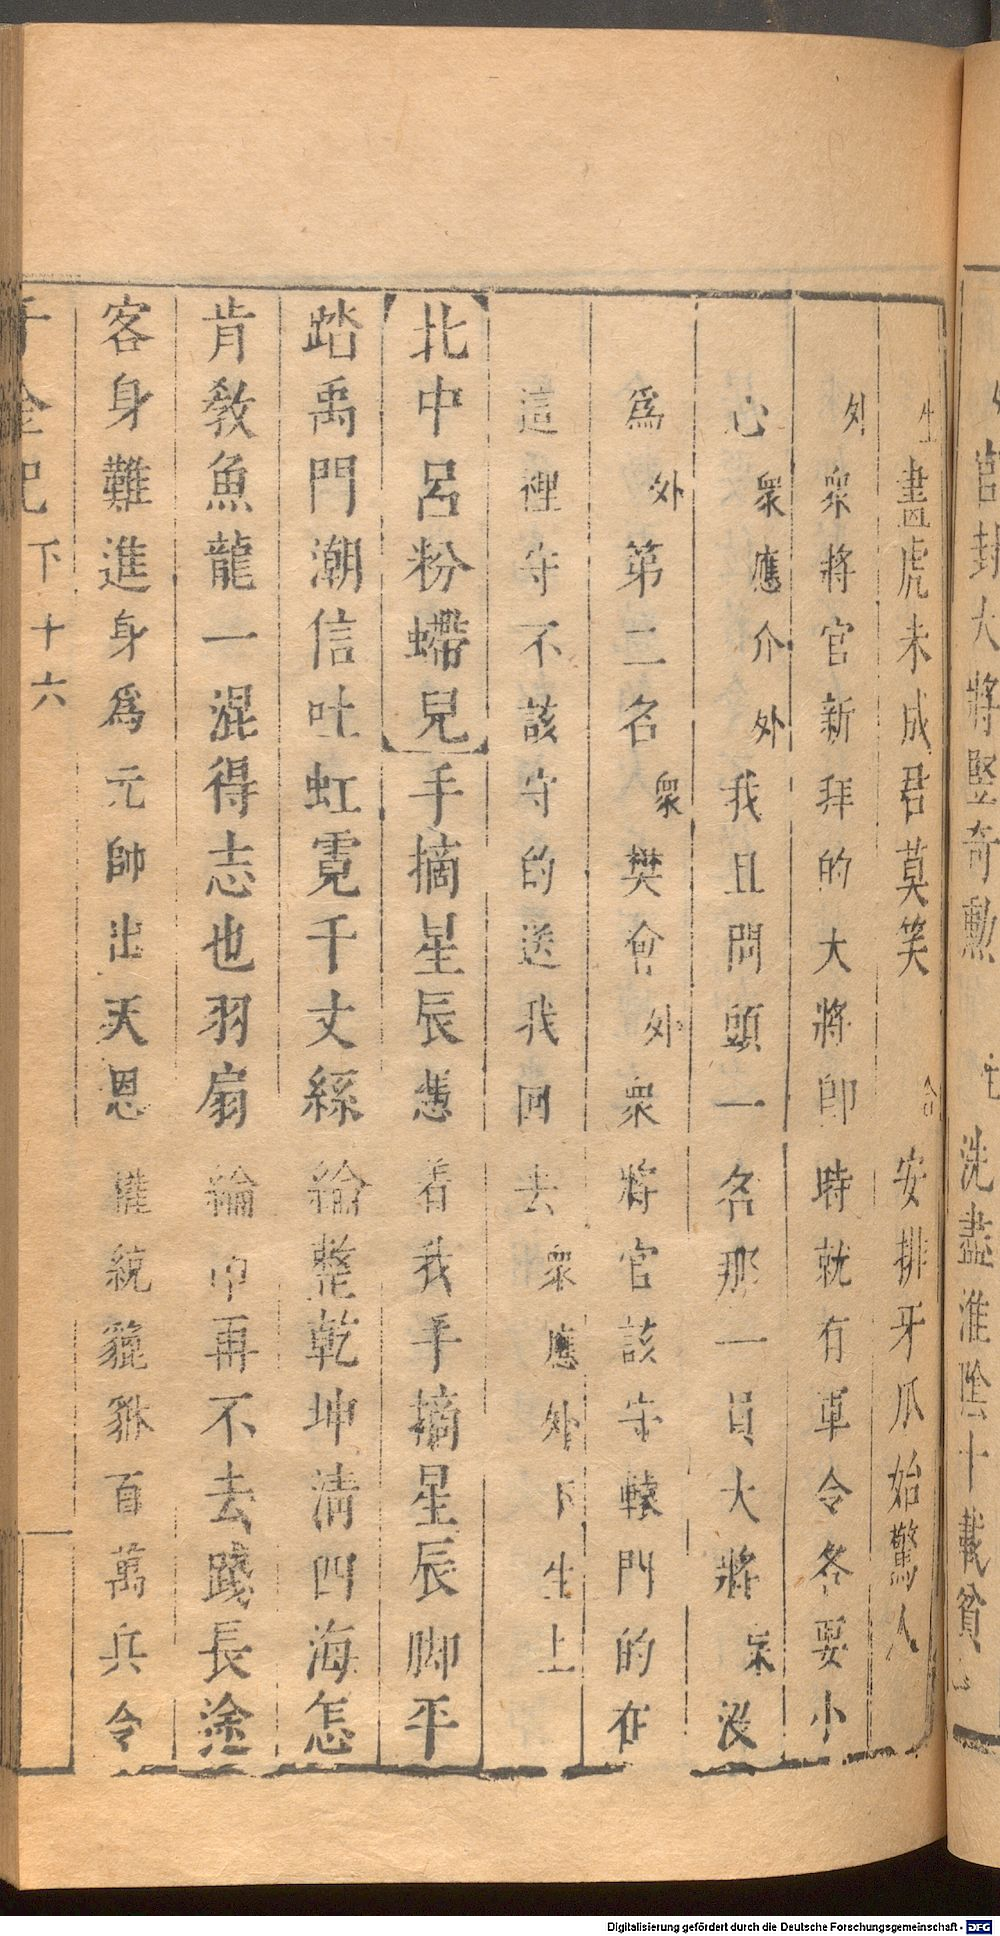 官封大將堅奇勲
洗盡淮陰十載貧
生 畫虎未成君莫笑 合 安排牙爪始驚人
外 衆將官新拜的大將卽時就有軍令各要小
心 衆應介 外 我且問頭一名那一員大將 衆 沒
爲 外 第二名 衆 樊會 外 衆將官該守轅門的在
這裡守不該守的送我回去 衆應外下生上
【北中呂粉蝶兒】手摘星辰憑着我手摘星辰脚平
踏禹門潮信吐虹霓千丈絲綸整乾坤淸四海怎
肯敎魚龍一混得志也羽扇綸巾再不去踐長途
客身難進身爲元帥出天恩權統貔貅百萬兵令
千金記 下 十六
Digitalisierung gefördert durch die Deutsche Forschungsgemeinschaft - DFG